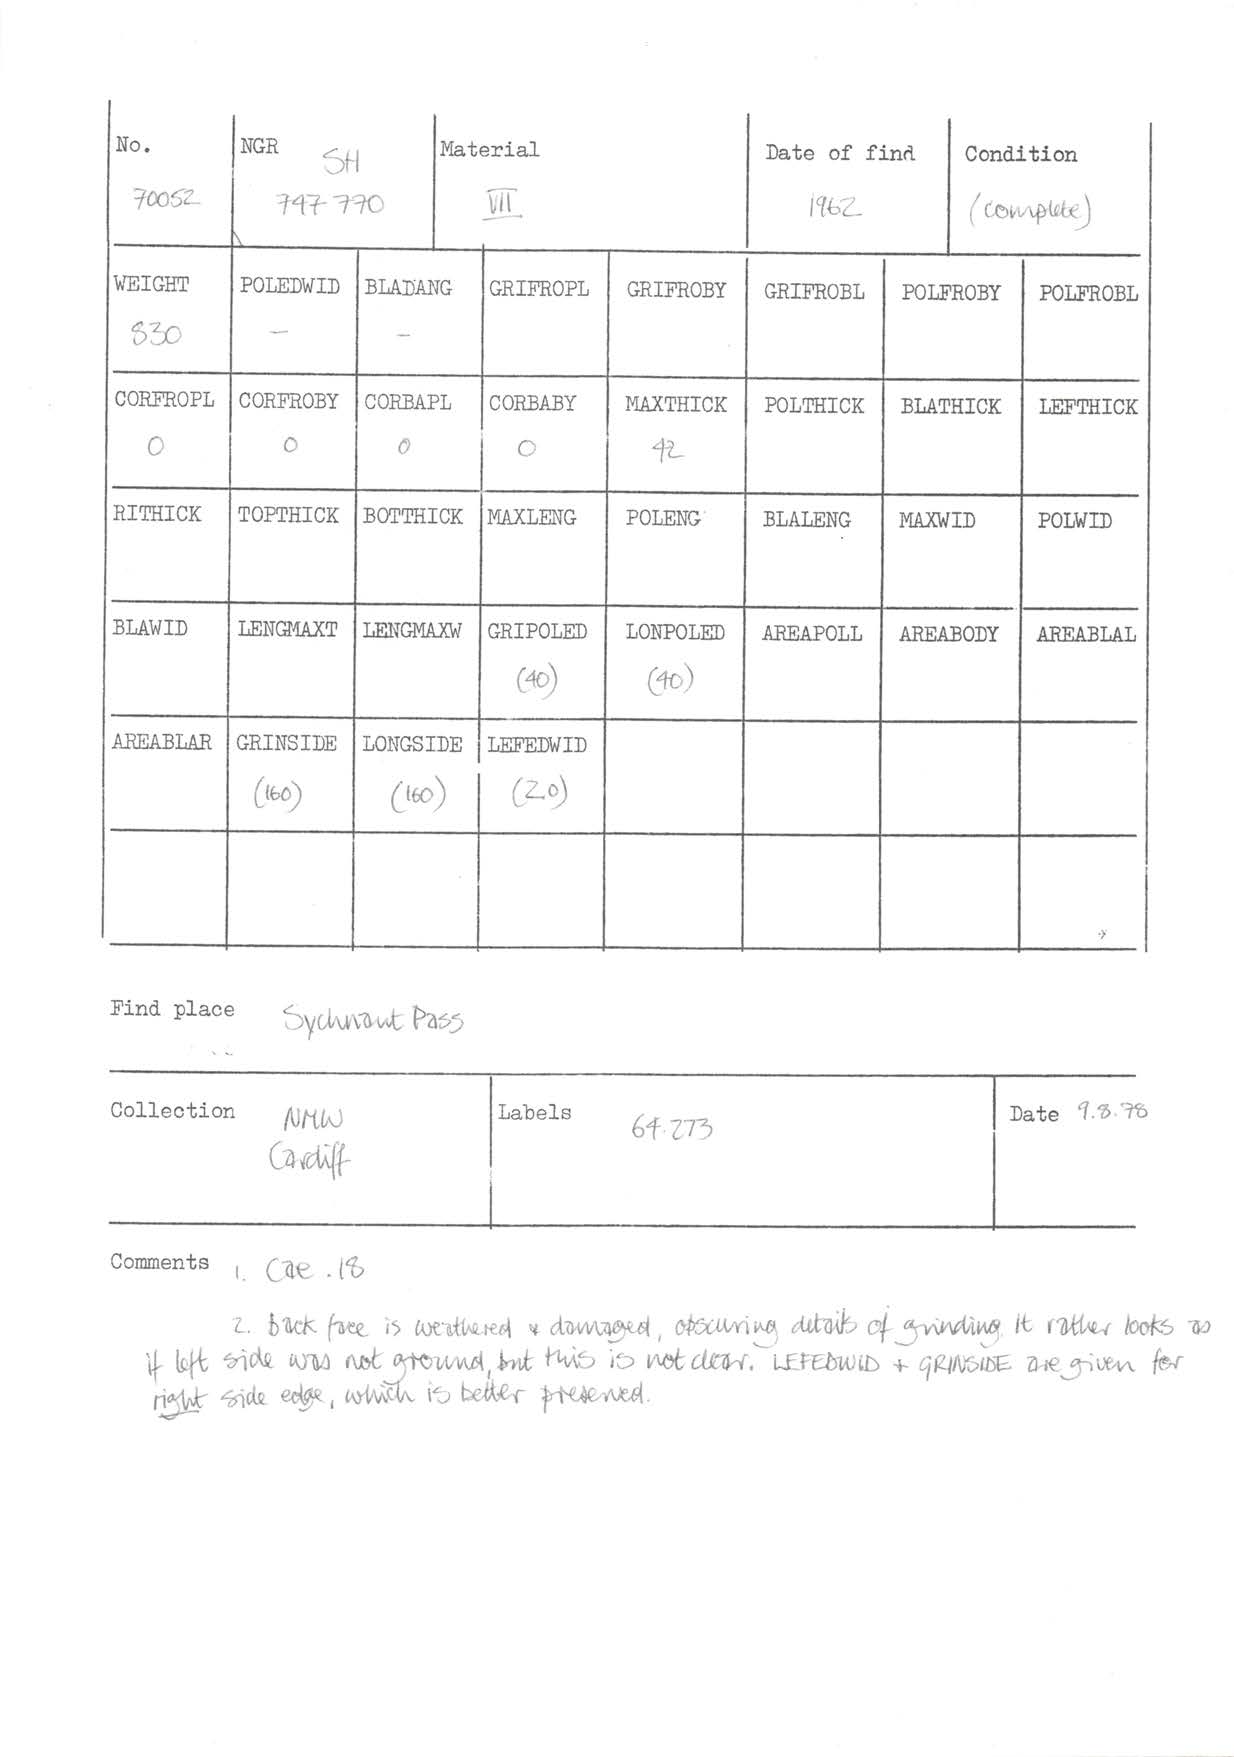 No. NGR SH Material Date of find Condition
70052 747 770 VII 1962 (complete)
WEIGHT POLEDWID BLADANG GRIFROPL GRIFROBY GRIFROBL POLFROBY POLFROBL
830 — —
CORFROPL CORFROBY CORBAPL CORBABY MAXTHICK POLTHICK BLATHICK LEFTHICK
0 0 0 0 42
RITHICK TOPTHICK BOTTHICK MAXLENG POLENG BLALENG MAXWID POLWID
BLAWID LENGMAXT LENGMAXW GRIPOLED LONPOLED AREAPOLL AREABODY AREABLAL
(40) (40)
AREABLAR GRINSIDE LONGSIDE LEFEDWID
(160) (160) (2.0)
Find place Sychnant Pass
Collection NMW Labels 64.273 Date 9.8.78
Cardiff
Comments 1. Cae .18
2. back face is weathered & damaged, obscuring details of grinding. It rather looks as
if left side was not ground, but this is not clear. LEFEDWID + GRINSIDE are given for
right side edge, which is better preserved.